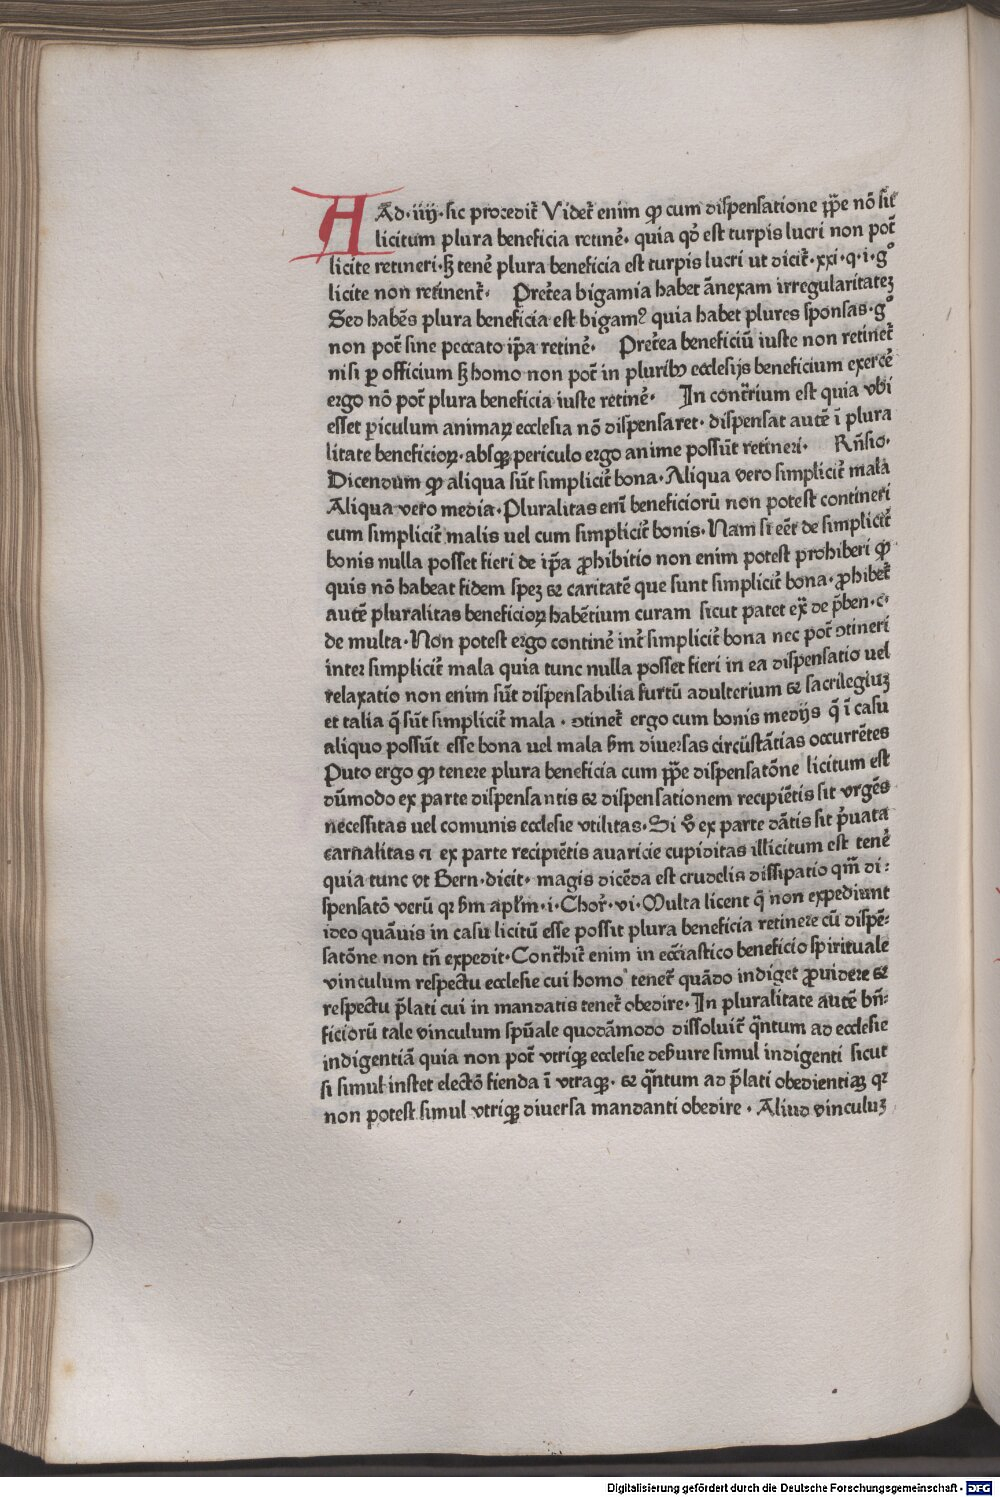 AD·iiij·sic procedit̄ Videt̄ enim ꝙ cum dispensatione pp̄e nō sit
licitum plura beneficia retinē· quia qd̄ est turpis lucri non pot̄
licite retineri·sꝫ tenē plura beneficia est turpis lucri ut dicit̄·xxi·q·i·gͦ
licite non retinent̄· Pret̄ea bigamia habet ānexam irregularitateꝫ
Sed habēs plura beneficia est bigamꝰ quia habet plures sponsas·gͦ
non pot̄ sine peccato ip̄a retinē· Pret̄ea beneficiū iuste non retinet̄
nisi ꝑ officium sꝫ homo non pot̄ in pluribꝫ ecclesijs beneficium exercē
ergo nō pot̄ plura beneficia iuste retinē· In cont̄rium est quia vbi
esset ꝑiculum animaꝝ ecclesia nō dispensaret· dispensat autē ī plura
litate beneficioꝝ·absqꝫ periculo ergo anime possūt retineri· Rn̄sio·
Dicendum ꝙ aliqua sūt simplicit̄ bona·Aliqua vero simplicit̄ mala
Aliqua vero media·Pluralitas enī beneficiorū non potest contineri
cum simplicit̄ malis uel cum simplicit̄ bonis·Nam si eēt de simplicit̄
bonis nulla posset fieri de ip̄a ꝓhibitio non enim potest prohiberi ꝙ
quis nō habeat fidem speꝫ et caritatē que sunt simplicit̄ bona·ꝓhibet̄
autē pluralitas beneficioꝝ habētium curam sicut patet ex̄ de p̄ben·c·
de multa·Non potest ergo continē int̄ simplicit̄ bona nec pot̄ ↄtineri
inter simplicit̄ mala quia tunc nulla posset fieri in ea dispensatio uel
relaxatio non enim sūt dispensabilia furtū adulterium et sacrilegiuꝫ
et talia q̄ sūt simplicit̄ mala · ↄtinet̄ ergo cum bonis medijs q̄ ī casu
aliquo possūt esse bona uel mala sm̄ diuersas circūstātias occurrētes
Puto ergo ꝙ tenere plura beneficia cum pp̄e dispensatōne licitum est
dūmodo ex parte dispensantis et dispensationem recipiētis sit vrgēs
necessitas uel comunis ecclesie vtilitas·Si v̄o ex parte dātis sit p̄uata
carnalitas et ex parte recipiētis auaricie cupiditas illicitum est tenē
quia tunc vt Bern·dicit· magis dicēda est crudelis dissipatio qm̄ di:
spensatō verū qꝛ sm̄ apl̄m·i·Chor̄·vi·Multa licent q̄ non expediunt
ideo quāuis in casu licitū esse possit plura beneficia retinere cū dispē:
satōne non tn̄ expedit·Cont̄hit̄ enim in ecc̄iastico beneficio spirituale
vinculum respectu ecclesie cui homo tenet̄ quādo indiget ꝓuidere et
respectu p̄lati cui in mandatis tenet̄ obedire·In pluralitate autē bn̄:
ficiorū tale vinculum spūale quodāmodo dissoluit̄ q̄ntum ad ecclesie
indigentiā quia non pot̄ vtriqꝫ ecclesie debuire simul indigenti sicut
si simul instet electō fienda ī vtraqꝫ· et q̄ntum ad p̄lati obedientiaꝫ qꝛ
non potest simul vtriqꝫ diuersa mandanti obedire · Aliud vinculuꝫ
Digitalisierung gefördert durch die Deutsche Forschungsgemeinschaft - DFG